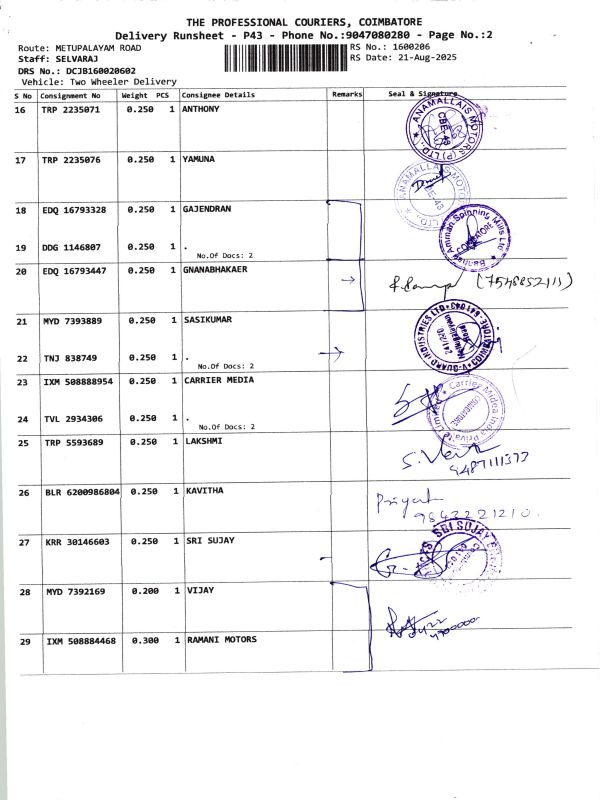 THE PROFESSIONAL COURIERS, COIMBATORE
Delivery Runsheet - P43 - Phone No.:9047080280 - Page No.:2
Route: METUPALAYAM ROAD
RS No.: 1600206
Staff: SELVARAJ
RS Date: 21-Aug-2025
DRS No.: DCJB160020602
Vehicle: Two Wheeler Delivery
S No Consignment No Weight PCS Consignee Details Remarks Seal & Signature
16 TRP 2235071 0.250 1 ANTHONY
ANAMALLAIS MOTORS (P) LTD.
CBE-43
17 TRP 2235076 0.250 1 YAMUNA
ANAMALLAIS MOTORS
LTD.
18 EDQ 16793328 0.250 1 GAJENDRAN
19 DDG 1146807 0.250 1 .
No.Of Docs: 2
Bannari Amman Spinning Mills Ltd
COIMBATORE
20 EDQ 16793447 0.250 1 GNANABHAKAER
(7548852111)
21 MYD 7393889 0.250 1 SASIKUMAR
V-GUARD INDUSTRIES LTD
22 TNJ 838749 0.250 1 .
No.Of Docs: 2
23 IXM 508888954 0.250 1 CARRIER MEDIA
Carrier Midea India Private Limited
24 TVL 2934306 0.250 1 .
No.Of Docs: 2
25 TRP 5593689 0.250 1 LAKSHMI
9487111373
26 BLR 6200986804 0.250 1 KAVITHA
9843221210.
27 KRR 30146603 0.250 1 SRI SUJAY
SRI SUJAY
28 MYD 7392169 0.200 1 VIJAY
29 IXM 508884468 0.300 1 RAMANI MOTORS